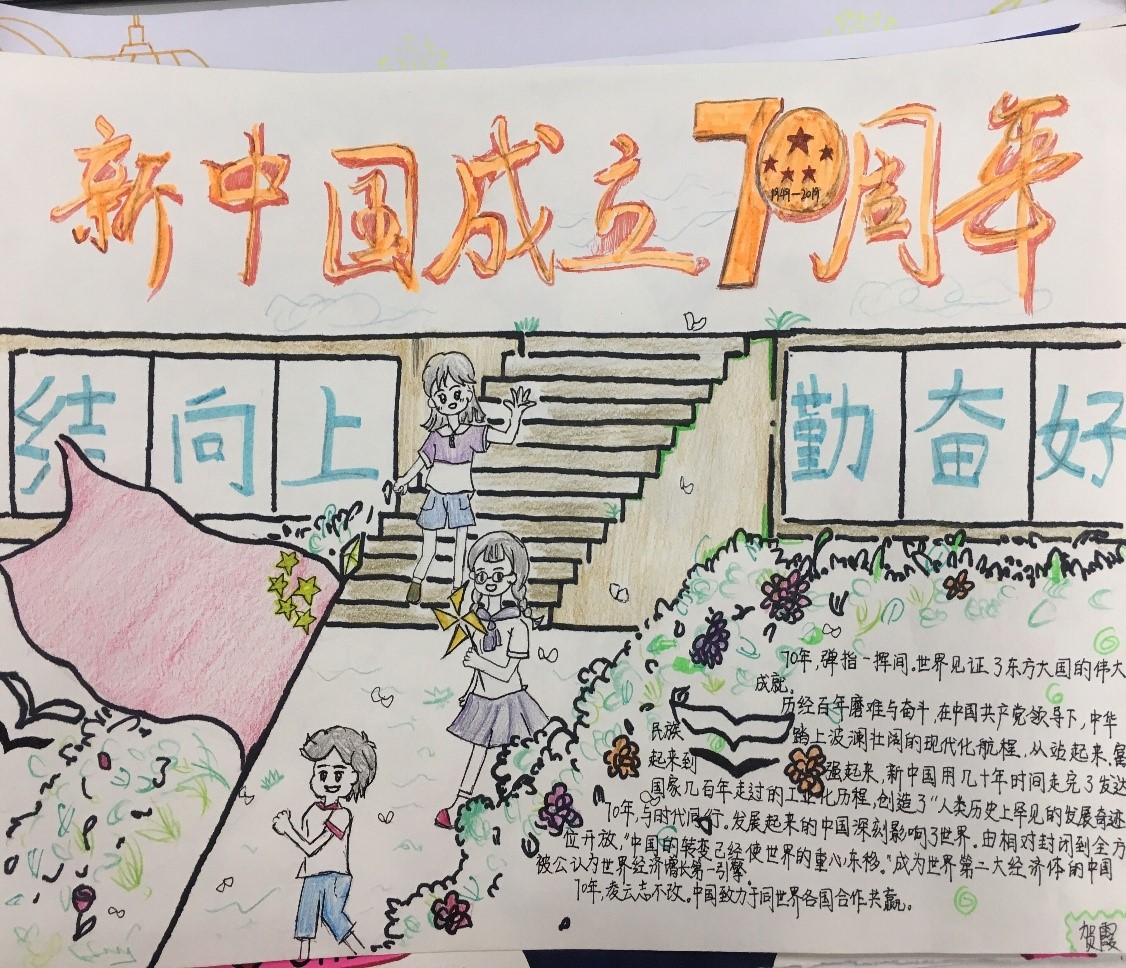 新中国成立70周年
1949-2019
结向上
勤奋好
70年，弹指一挥间。世界见证了东方大国的伟大
成就。
历经百年磨难与奋斗，在中国共产党领导下，中华
民族 踏上波澜壮阔的现代化航程，从站起来、富
起来到 强起来，新中国用几十年时间走完了发达
国家几百年走过的工业化历程，创造了“人类历史上罕见的发展奇迹
70年，与时代同行。发展起来的中国深刻影响了世界。由相对封闭到全方
位开放，“中国的转变已经使世界的重心东移。”成为世界第二大经济体的中国
被公认为世界经济增长第一引擎。
70年，凌云志不改。中国致力于同世界各国合作共赢。
贺霞